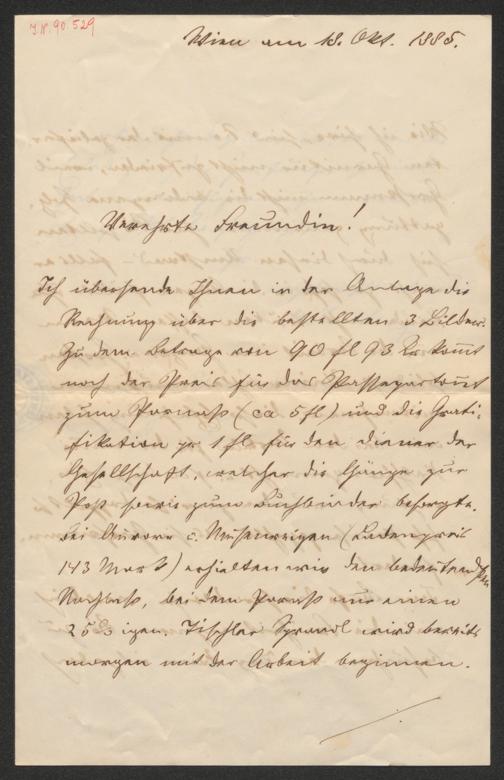 J.N. 90.529
Wien am 18. Okt. 1885.
Verehrte Freundin!
Ich übersende Ihnen in der Anlage die
Rechnung über die bestellten 3 Bilder.
Zu dem Betrage von 90 fl 93 Kr kom̅t
noch der Preis für das Passepartout
zum Parnaß (ca 5 fl) und die Grati-
fikation pr 1 fl für den Diener der
Gesellschaft, welcher die Gänge zur
Post sowie zum Buchbinder besorgte.
Bei Aurora (Ladenpreis
143 Mark) erhielten wir den bedeutendsten
Nachlaß, bei dem Parnaß nur einen
25 % igen. Tischler wird bereits
morgen mit der Arbeit beginnen.